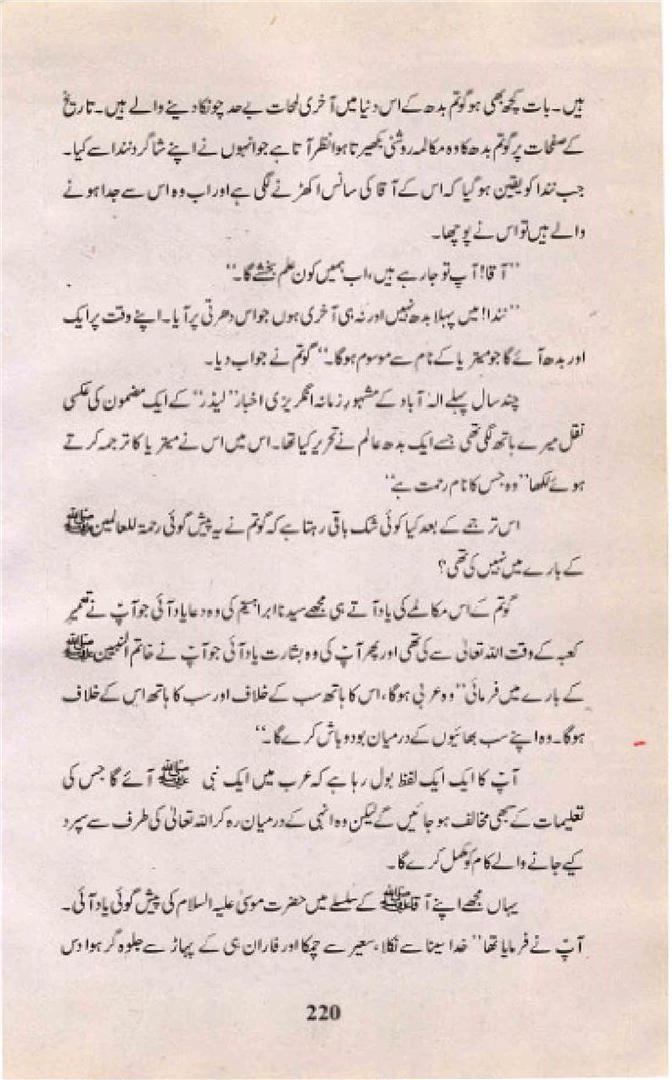 ہیں۔ بات کچھ بھی ہو گوتم بدھ کے اس دنیا میں آخری لمحات بے حد چونکا دینے والے ہیں۔ تاریخ
کے صفحات پر گوتم بدھ کا وہ مکالمہ روشنی بکھیرتا ہوا نظر آتا ہے جو انہوں نے اپنے شاگرد نندا سے کیا۔
جب نندا کو یقین ہو گیا کہ اس کے آقا کی سانس اکھڑنے لگی ہے اور اب وہ اس سے جدا ہونے
والے ہیں تو اس نے پوچھا۔
’’آقا! آپ تو جا رہے ہیں، اب ہمیں کون علم بخشے گا۔‘‘
’’نندا! میں پہلا بدھ نہیں اور نہ ہی آخری ہوں جو اس دھرتی پر آیا۔ اپنے وقت پر ایک
اور بدھ آئے گا جو میتریا کے نام سے موسوم ہوگا۔‘‘ گوتم نے جواب دیا۔
چند سال پہلے الٰہ آباد کے مشہور زمانہ انگریزی اخبار ’’لیڈر‘‘ کے ایک مضمون کی عکسی
نقل میرے ہاتھ لگی تھی جسے ایک بدھ عالم نے تحریر کیا تھا۔ اس میں اس نے میتریا کا ترجمہ کرتے
ہوئے لکھا ’’وہ جس کا نام رحمت ہے‘‘
اس ترجمے کے بعد کیا کوئی شک باقی رہتا ہے کہ گوتم نے یہ پیش گوئی رحمۃ للعالمین ﷺ
کے بارے میں نہیں کی تھی؟
گوتم کے اس مکالمے کی یاد آتے ہی مجھے سیدنا ابراہیمؑ کی وہ دعا یاد آئی جو آپؑ نے تعمیر
کعبہ کے وقت اللہ تعالیٰ سے کی تھی اور پھر آپ کی وہ بشارت یاد آئی جو آپ نے خاتم النبیین ﷺ
کے بارے میں فرمائی ’’وہ عربی ہوگا، اس کا ہاتھ سب کے خلاف اور سب کا ہاتھ اس کے خلاف
ہوگا۔ وہ اپنے سب بھائیوں کے درمیان بود و باش کرے گا۔‘‘
آپؑ کا ایک ایک لفظ بول رہا ہے کہ عرب میں ایک نبی ﷺ آئے گا جس کی
تعلیمات کے سبھی مخالف ہو جائیں گے لیکن وہ انہی کے درمیان رہ کر اللہ تعالیٰ کی طرف سے سپرد
کیے جانے والے کام کو مکمل کرے گا۔
یہاں مجھے اپنے آقا ﷺ کے سلسلے میں حضرت موسیٰ علیہ السلام کی پیش گوئی یاد آئی۔
آپؑ نے فرمایا تھا ’’خدا سینا سے نکلا، سعیر سے چمکا اور فاران ہی کے پہاڑ سے جلوہ گر ہوا دس
220